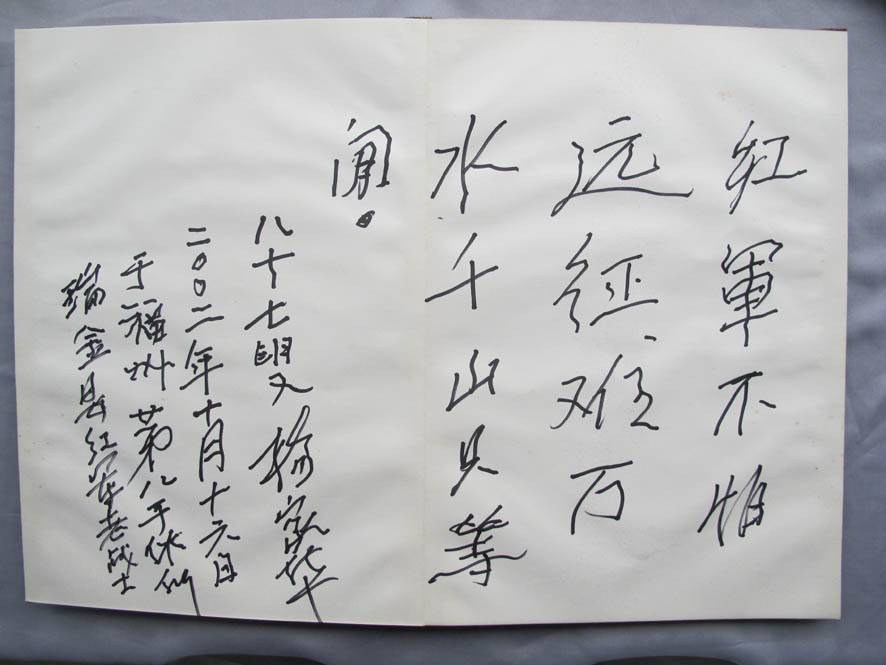 红軍不怕
远征难万
水千山只等
闲。
八十七叟 杨家华
二〇〇二年十月十六日
于福州第八干休所
瑞金县红军老战士